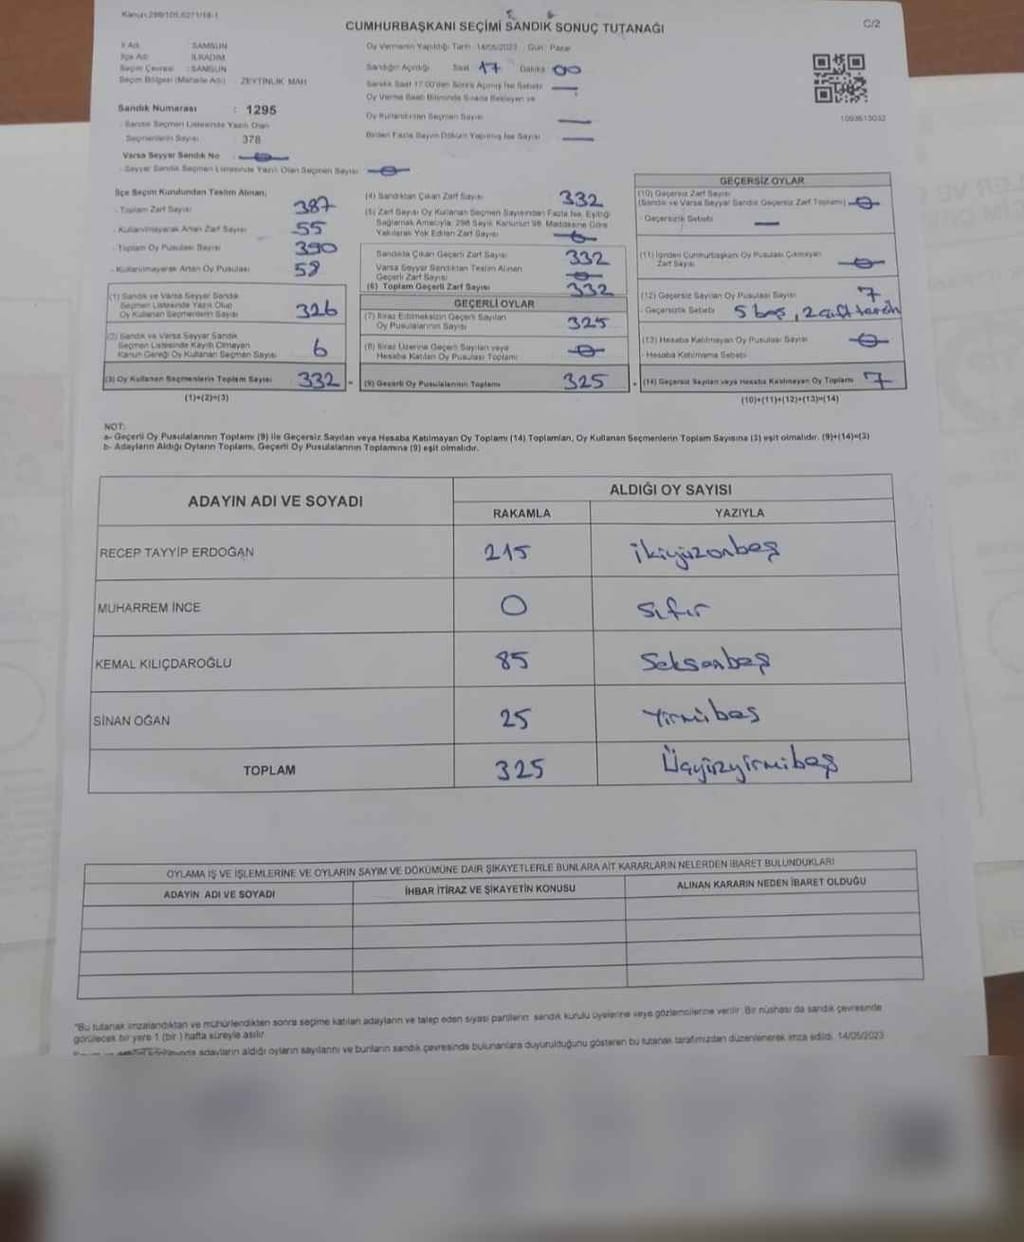 CUMHURBAŞKANI SEÇİMİ SANDIK SONUÇ TUTANAĞI
C/2
İl Adı : SAMSUN
İlçe Adı : İLKADIM
Seçim Çevresi : SAMSUN
Seçim Bölgesi (Mahalle Adı) ZEYTİNLİK MAH
Sandık Numarası : 1295
Sandık Seçmen Listesinde Yazılı Olan
Seçmenlerin Sayısı 378
Varsa Seyyar Sandık No
- Seyyar Sandık Seçmen Listesinde Yazılı Olan Seçmen Sayısı
Oy Vermenin Yapıldığı Tarih 14/05/2023 Gün: Pazar
Sandığın Açıldığı Saat 17 Dakika 00
Sandık Saat 17:00'den Sonra Açılmış İse Sebebi
Oy Verme Saati Bitiminde Sırada Bekleyen ve
Oy Kullandırılan Seçmen Sayısı
Birden Fazla Sayım Döküm Yapılmış İse Sayısı
İlçe Seçim Kurulundan Teslim Alınan;
- Toplam Zarf Sayısı 387
- Kullanılmayarak Artan Zarf Sayısı 55
- Toplam Oy Pusulası Sayısı 390
- Kullanılmayarak Artan Oy Pusulası 58
(1) Sandık ve Varsa Seyyar Sandık
Seçmen Listesinde Yazılı Olup
Oy Kullanan Seçmenlerin Sayısı 326
(2) Sandık ve Varsa Seyyar Sandık
Seçmen Listesinde Kayıtlı Olmayan
Kanun Gereği Oy Kullanan Seçmen Sayısı 6
(3) Oy Kullanan Seçmenlerin Toplam Sayısı 332
(1)+(2)=(3)
(4) Sandıktan Çıkan Zarf Sayısı 332
(5) Zarf Sayısı Oy Kullanan Seçmen Sayısından Fazla İse, Eşitliği
Sağlamak Amacıyla, 298 Sayılı Kanunun 98. Maddesine Göre
Yakılarak Yok Edilen Zarf Sayısı
Sandıkta Çıkan Geçerli Zarf Sayısı 332
Varsa Seyyar Sandıktan Teslim Alınan
Geçerli Zarf Sayısı
(6) Toplam Geçerli Zarf Sayısı 332
GEÇERLİ OYLAR
(7) İtiraz Edilmeksizin Geçerli Sayılan
Oy Pusulalarının Sayısı 325
(8) İtiraz Üzerine Geçerli Sayılan veya
Hesaba Katılan Oy Pusulası Toplamı
(9) Geçerli Oy Pusulalarının Toplamı 325
GEÇERSİZ OYLAR
(10) Geçersiz Zarf Sayısı
(Sandık ve Varsa Seyyar Sandık Geçersiz Zarf Toplamı)
- Geçersizlik Sebebi
(11) İçinden Cumhurbaşkanı Oy Pusulası Çıkmayan
Zarf Sayısı
(12) Geçersiz Sayılan Oy Pusulası Sayısı 7
- Geçersizlik Sebebi 5 boş, 2 çift tercih
(13) Hesaba Katılmayan Oy Pusulası Sayısı
- Hesaba Katılmama Sebebi
(14) Geçersiz Sayılan veya Hesaba Katılmayan Oy Toplamı 7
(10)+(11)+(12)+(13)=(14)
NOT:
a- Geçerli Oy Pusulalarının Toplamı (9) ile Geçersiz Sayılan veya Hesaba Katılmayan Oy Toplamı (14) Toplamları, Oy Kullanan Seçmenlerin Toplam Sayısına (3) eşit olmalıdır. (9)+(14)=(3)
b- Adayların Aldığı Oyların Toplamı, Geçerli Oy Pusulalarının Toplamına (9) eşit olmalıdır.
ADAYIN ADI VE SOYADI ALDIĞI OY SAYISI
RAKAMLA YAZIYLA
RECEP TAYYİP ERDOĞAN 215 ikiyüzonbeş
MUHARREM İNCE 0 Sıfır
KEMAL KILIÇDAROĞLU 85 Seksenbeş
SİNAN OĞAN 25 Yirmibeş
TOPLAM 325 Üçyüzyirmibeş
OYLAMA İŞ VE İŞLEMLERİNE VE OYLARIN SAYIM VE DÖKÜMÜNE DAİR ŞİKAYETLERLE BUNLARA AİT KARARLARIN NELERDEN İBARET BULUNDUKLARI
ADAYIN ADI VE SOYADI İHBAR İTİRAZ VE ŞİKAYETİN KONUSU ALINAN KARARIN NEDEN İBARET OLDUĞU
"Bu tutanak imzalandıktan ve mühürlendikten sonra seçime katılan adayların ve talep eden siyasi partilerin sandık kurulu üyelerine veya gözlemcilerine verilir. Bir nüshası da sandık çevresinde
görülecek bir yere 1 (bir) hafta süreyle asılır.
adayların aldığı oyların sayılarını ve bunların sandık çevresinde bulunanlara duyurulduğunu gösteren bu tutanak tarafımızdan düzenlenerek imza edildi. 14/05/2023